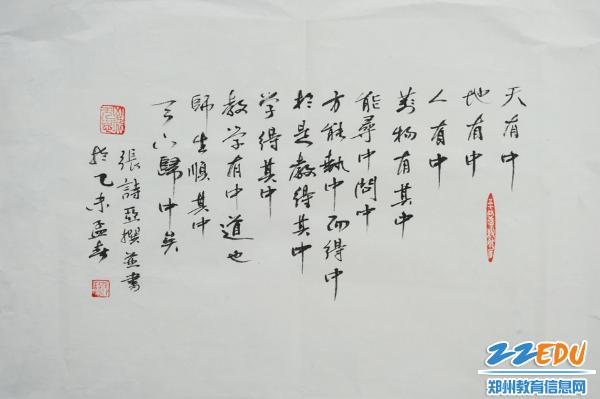 天有中
地有中
人有中
萬物有其中
能尋中問中
方能執中而得中
於是教得其中
学得其中
教学有中道也
師生順其中
天下歸中矣
張詩亞撰並書
於乙未孟春
ZZEDU
郑州教育信息网